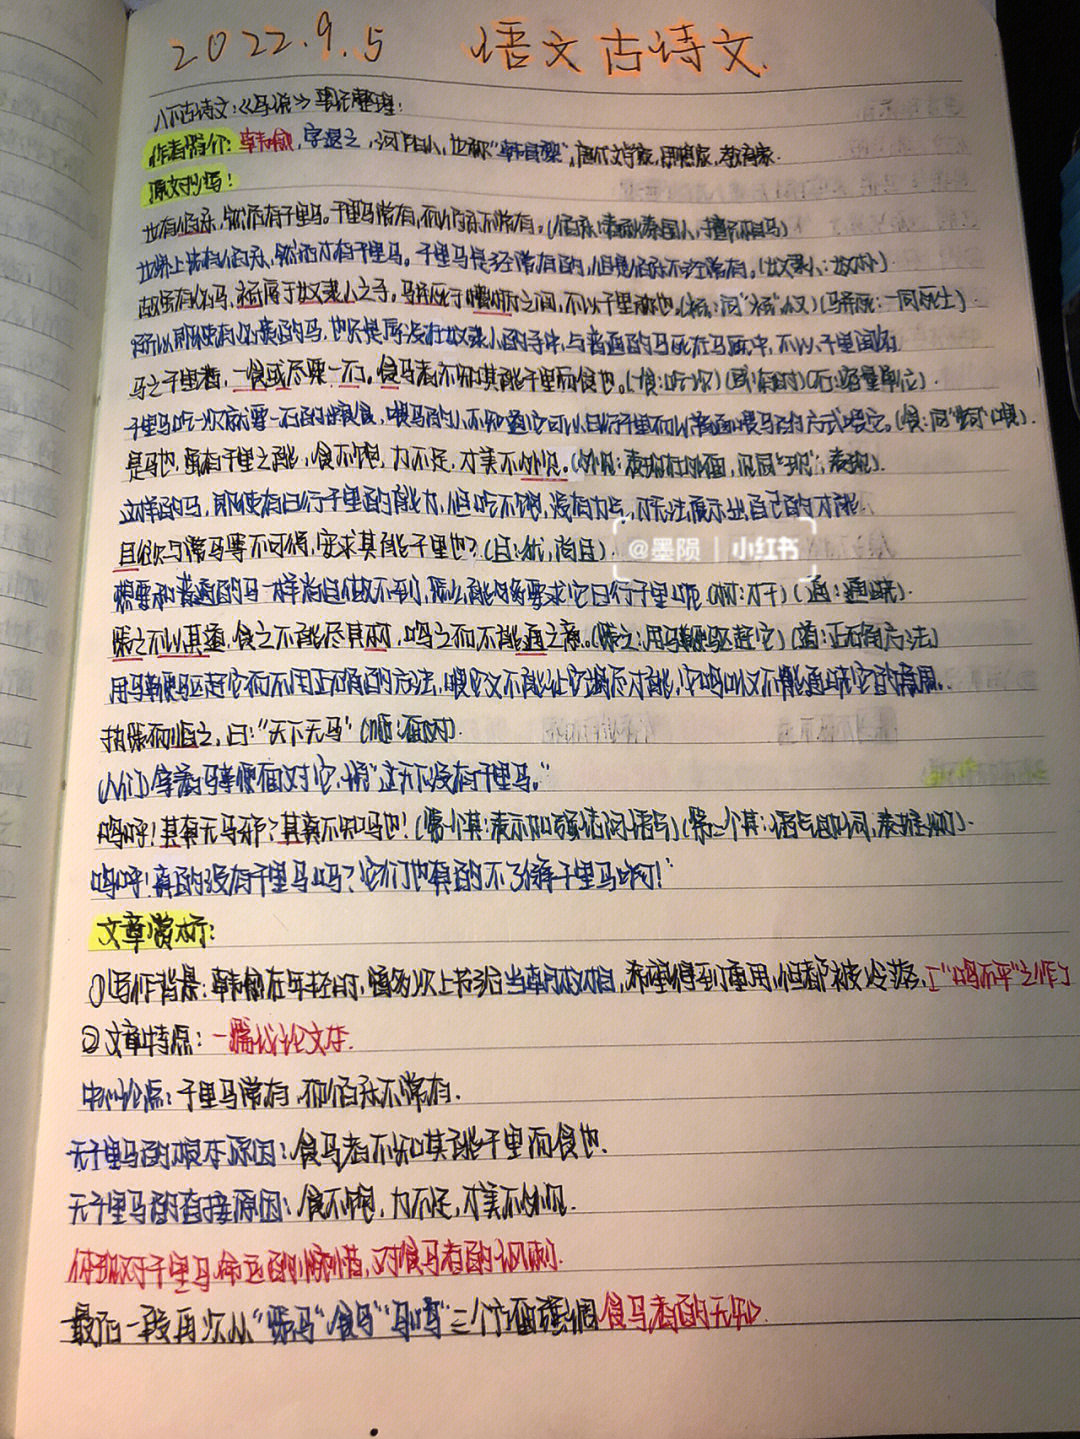 2022.9.5 语文古诗文.
八下古诗文:《马说》笔记整理:
作者简介: 韩愈, 字退之, 河阳人, 也称"韩昌黎", 唐代文学家, 思想家, 教育家.
原文抄写!
世有伯乐, 然后有千里马。千里马常有, 而伯乐不常有。(伯乐:春秋秦国人, 擅长相马)
世界上先有伯乐, 然后才有千里马。千里马是经常有的, 但是伯乐不经常有。
故虽有名马, 祗辱于奴隶人之手, 骈死于槽枥之间, 不以千里称也(祗:同"衹",仅)(骈死:一同死去)
所以即使有名贵的马, 也只是辱没在奴隶人的手中, 与普通的马死在马厩中, 不以千里闻名
马之千里者, 一食或尽粟一石。食马者不知其能千里而食也。(一食:吃一次)(或:有时)(石:容量单位).
千里马吃一次就要一石的粮食, 喂马的人不知道它可以日行千里而以普通喂马的方式喂它。(食:同"饲"喂).
是马也, 虽有千里之能, 食不饱, 力不足, 才美不外见。(外见:表现在外面, 见同"现":表现).
这样的马, 即使有日行千里的能力, 但吃不饱, 没有力气, 无法展示出自己的才能.
且欲与常马等不可得, 安求其能千里也?(且:犹, 尚且).
@墨陨 | 小红书
想要和普通的马一样尚且做不到, 怎么能够要求它日行千里呢(材:才干)(通:通晓).
策之不以其道, 食之不能尽其材, 鸣之而不能通之意。(策之:用马鞭驱赶它)(道:正确方法)
用马鞭驱赶它而不用正确的方法, 喂它又不能让它竭尽才能, 它鸣叫又不能通晓它的意思.
执策而临之, 曰:"天下无马"(临:面对).
(人们)拿着马鞭面对它, 说"这天下没有千里马。"
呜呼!其真无马邪?其真不知马也!(第一个其:表示加强诘问语气)(第二个其:语气助词, 表推测).
呜呼!真的没有千里马吗?它们也真的不了解千里马啊!
文章赏析:
①写作背景:韩愈在年轻时, 曾多次上书给当朝的宰相, 希望得到重用, 但都被冷落.["鸣不平"之作]
②文章特点:一篇议论文体.
中心论点:千里马常有, 而伯乐不常有.
无千里马的根本原因:食马者不知其能千里而食也.
无千里马的直接原因:食不饱, 力不足, 才美不外见.
体现对千里马命运的惋惜, 对食马者的讽刺.
最后一段再次从"策马""食马""马鸣"三个方面强调食马者的无知